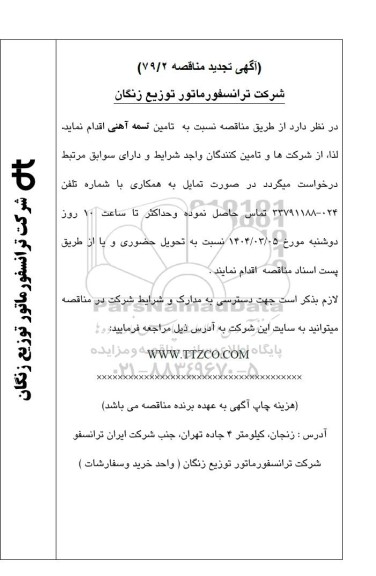 (آگهی تجدید مناقصه ۷۹/۲)
شرکت ترانسفورماتور توزیع زنگان
در نظر دارد از طریق مناقصه نسبت به تامین تسمه آهنی اقدام نماید،
لذا، از شرکت ها و تامین کنندگان واجد شرایط و دارای سوابق مرتبط
درخواست میگردد در صورت تمایل به همکاری با شماره تلفن
۰۲۴-۳۳۷۹۱۱۸۸ تماس حاصل نموده وحداکثر تا ساعت ۱۰ روز
دوشنبه مورخ ۱۴۰۴/۰۳/۰۵ نسبت به تحویل حضوری و یا از طریق
پست اسناد مناقصه اقدام نمایند .
لازم بذکر است جهت دسترسی به مدارک و شرایط شرکت در مناقصه
میتوانید به سایت این شرکت به آدرس ذیل مراجعه فرمایید:
ParsNamadData
پایگاه اطلاع رسانی مناقصه و مزایده
WWW.TTZCO.COM
۰۲۱-۸۸۳۴۹۶۷۰-۵
(هزینه چاپ آگهی به عهده برنده مناقصه می باشد)
آدرس : زنجان، کیلومتر ۴ جاده تهران، جنب شرکت ایران ترانسفو
شرکت ترانسفورماتور توزیع زنگان ( واحد خرید وسفارشات )
شرکت ترانسفورماتور توزیع زنگان
dt